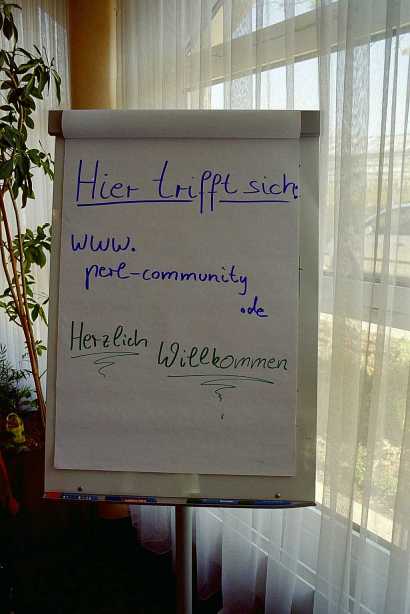 Hier trifft sich
www.
perl-community
.de
Herzlich Willkommen